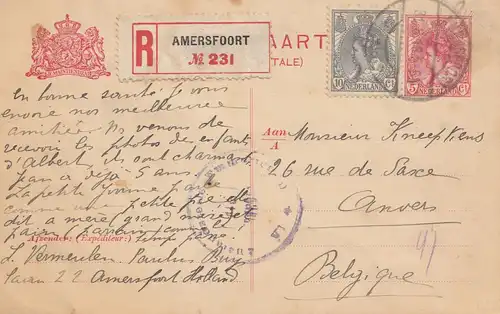 R
AMERSFOORT
№ 231
AART
TALE)
JE MAINTIENDRAI
10 Ct
NEDERLAND
5 Ct
NEDERLAND
en bonne santé je vous
envoie nos meilleures
amitiés. Ns venons de
recevoir les photos de enfants
d'Albert, ils sont charmants
Jean a déjà 5 ans.
La petite Yvonne parle
comme une petite pie elle
dit a mère grand merci
Afzender: (Expéditeur:)
L. Vermeulen Paulus Buys
laan 22 Amersfoort Holland
Aan
A
Monsieur Kneepkens
26 rue de Saxe
Anvers
Belgique